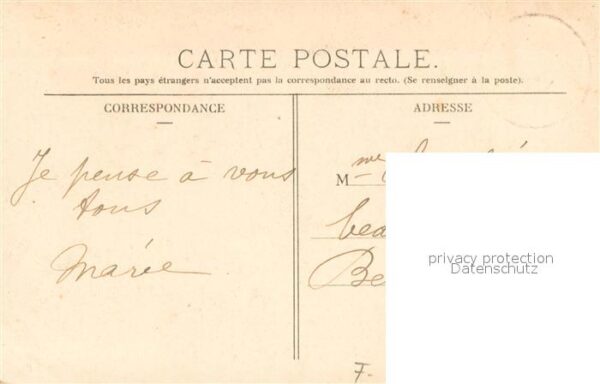 CARTE POSTALE.
Tous les pays étrangers n'acceptent pas la correspondance au recto. (Se renseigner à la poste).
CORRESPONDANCE
ADRESSE
Je pense à vous
tous
Marie
Mme
privacy protection
Datenschutz
F.